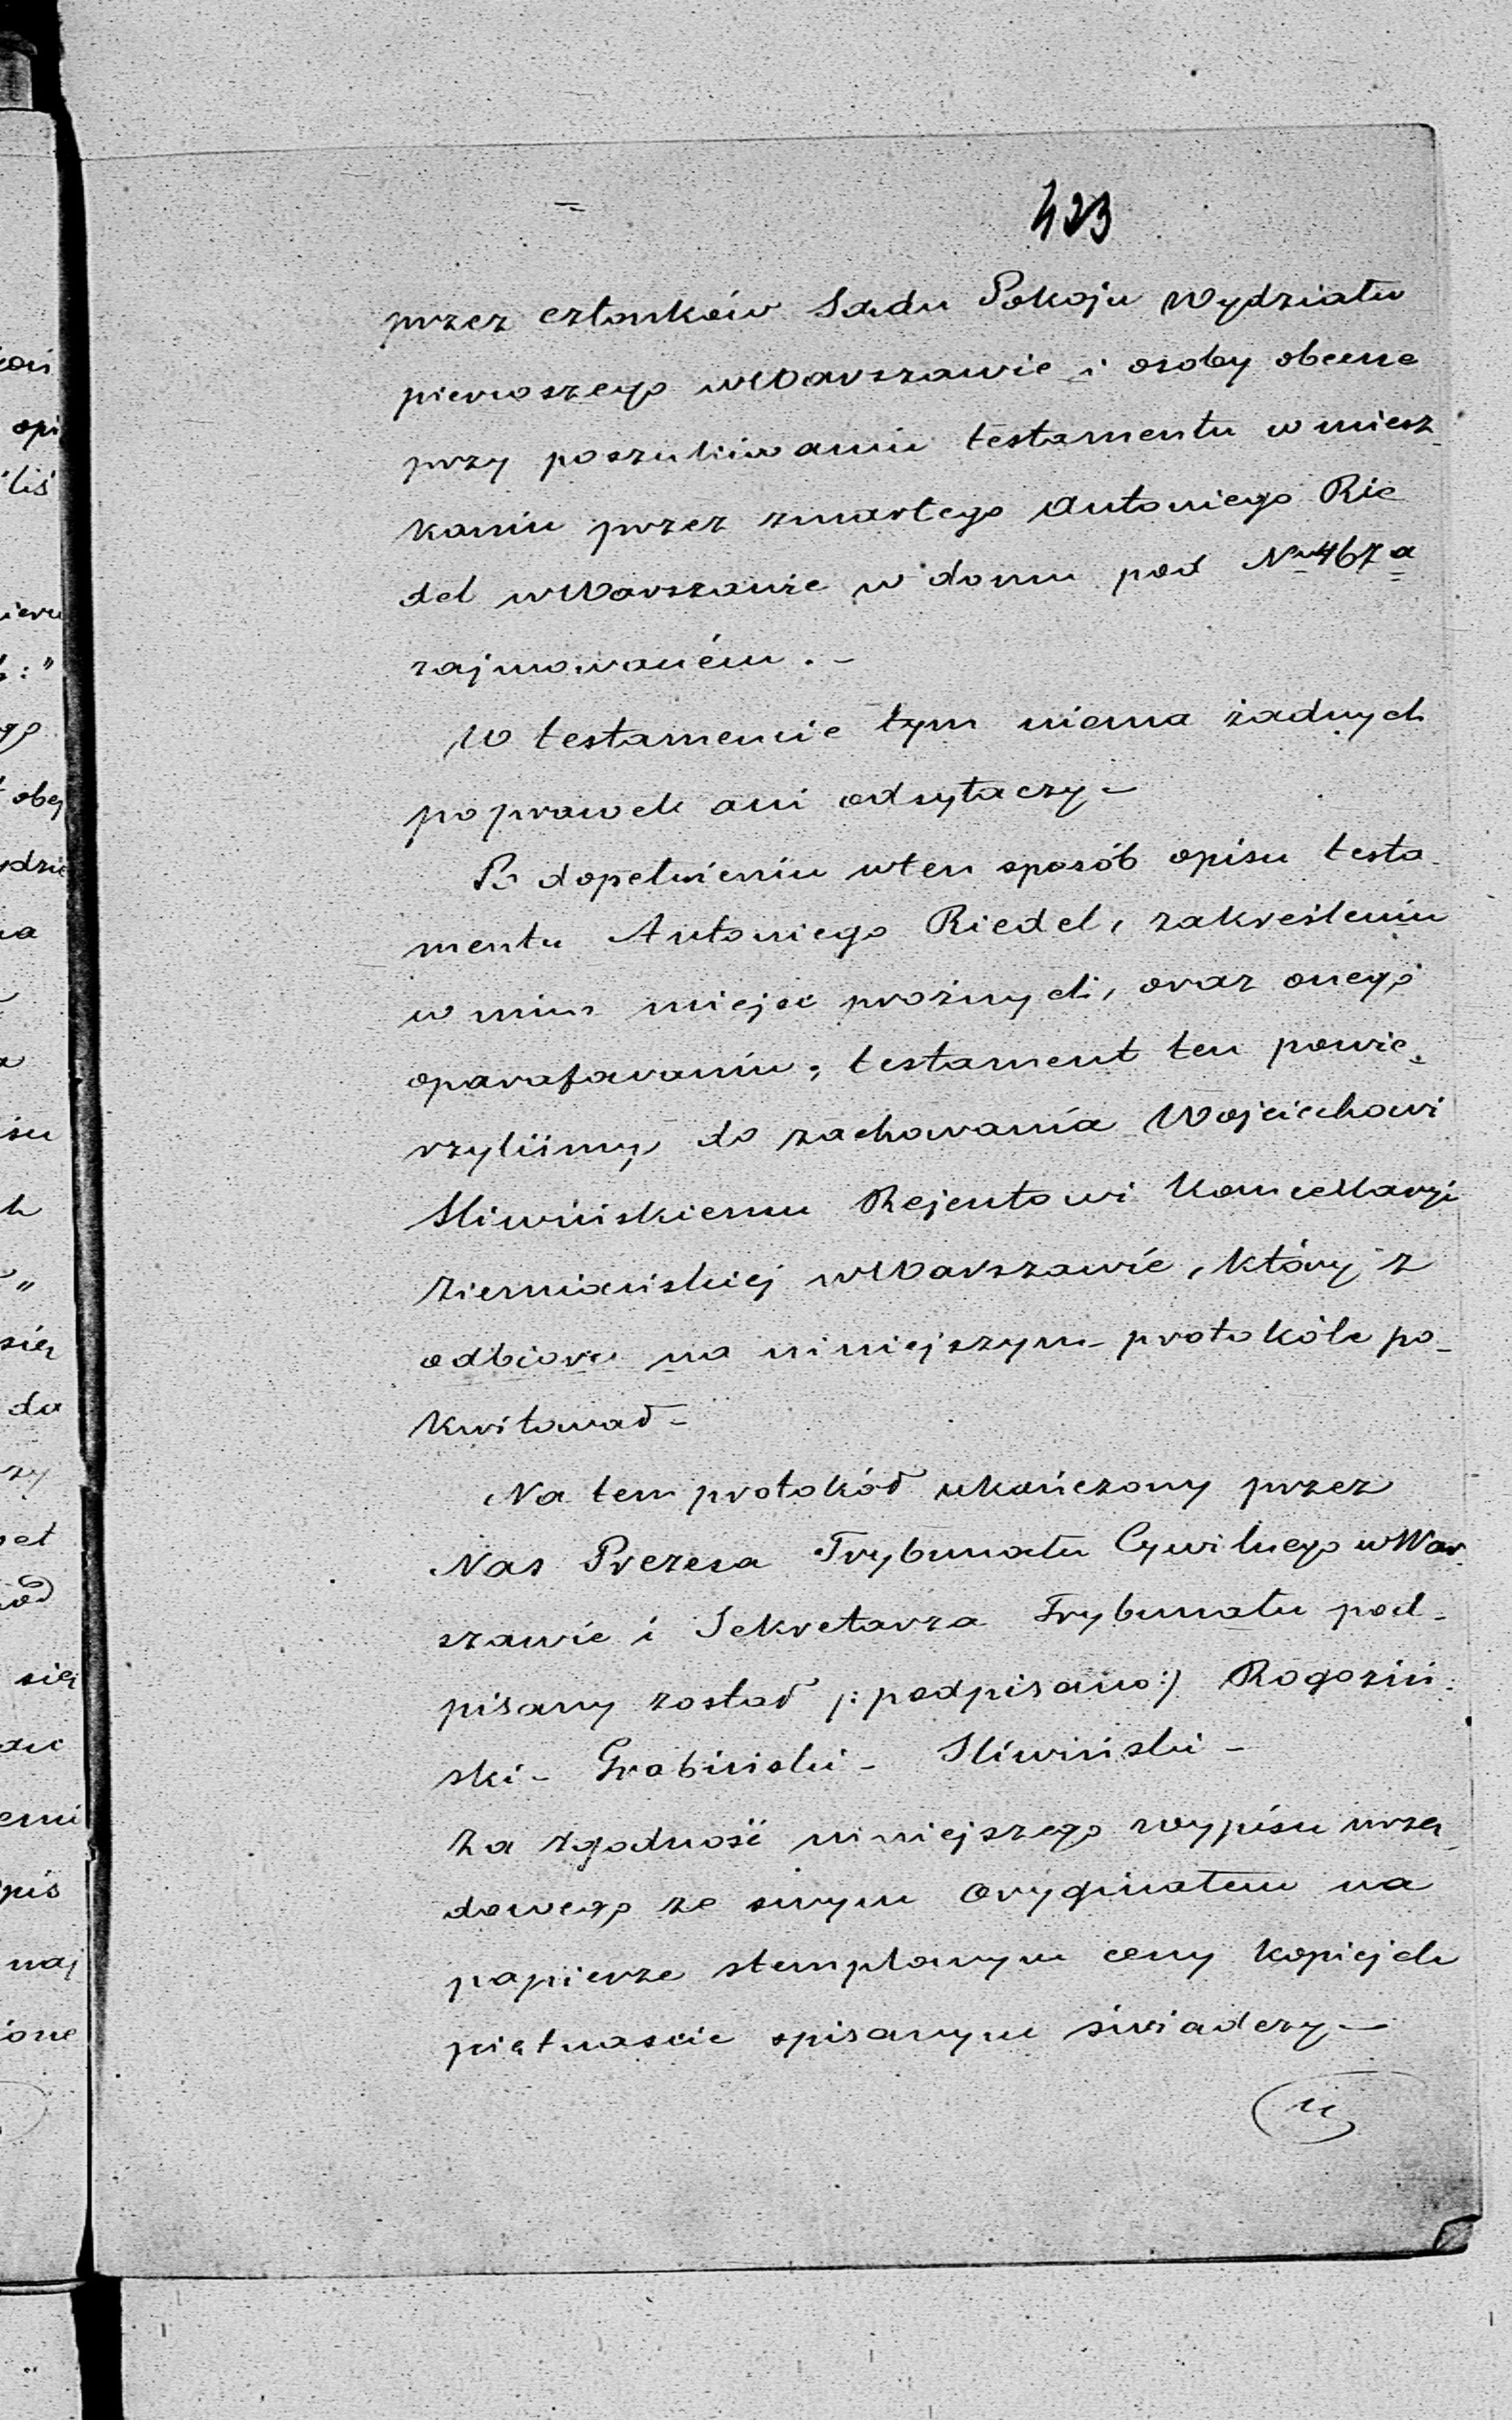 423
przez członków Sądu Pokoju Wydziału
pierwszego w Warszawie i osoby obecne
przy poszukiwaniu testamentu w miesz
kaniu przez zmarłego Antoniego Rie
del w Warszawie w domu pod Nr 467a
zajmowaném. -
W testamencie tym niema żadnych
poprawek ani odsyłaczy -
Po dopełnieniu w ten sposób opisu testa-
mentu Antoniego Riedel, zakreśleniu
w nim miejsc próżnych, oraz onego
oparafowaniu, testament ten powie-
rzyliśmy do zachowania Wojciechowi
Śliwińskiemu Rejentowi Kancellaryi
Ziemiańskiej w Warszawie, który z
odbioru na niniejszym protokóle po-
kwitował -
Na tem protokół ukończony przez
Nas Prezesa Trybunału Cywilnego w War-
szawie i Sekretarza Trybunału pod-
pisany został /: podpisano :/ Rogoziń-
ski - Grabiński - Śliwiński -
Za zgodność niniejszego wypisu urzę-
dowego ze swym oryginałem na
papierze stemplowym ceny kopiejek
piętnaście spisanym świadczy -